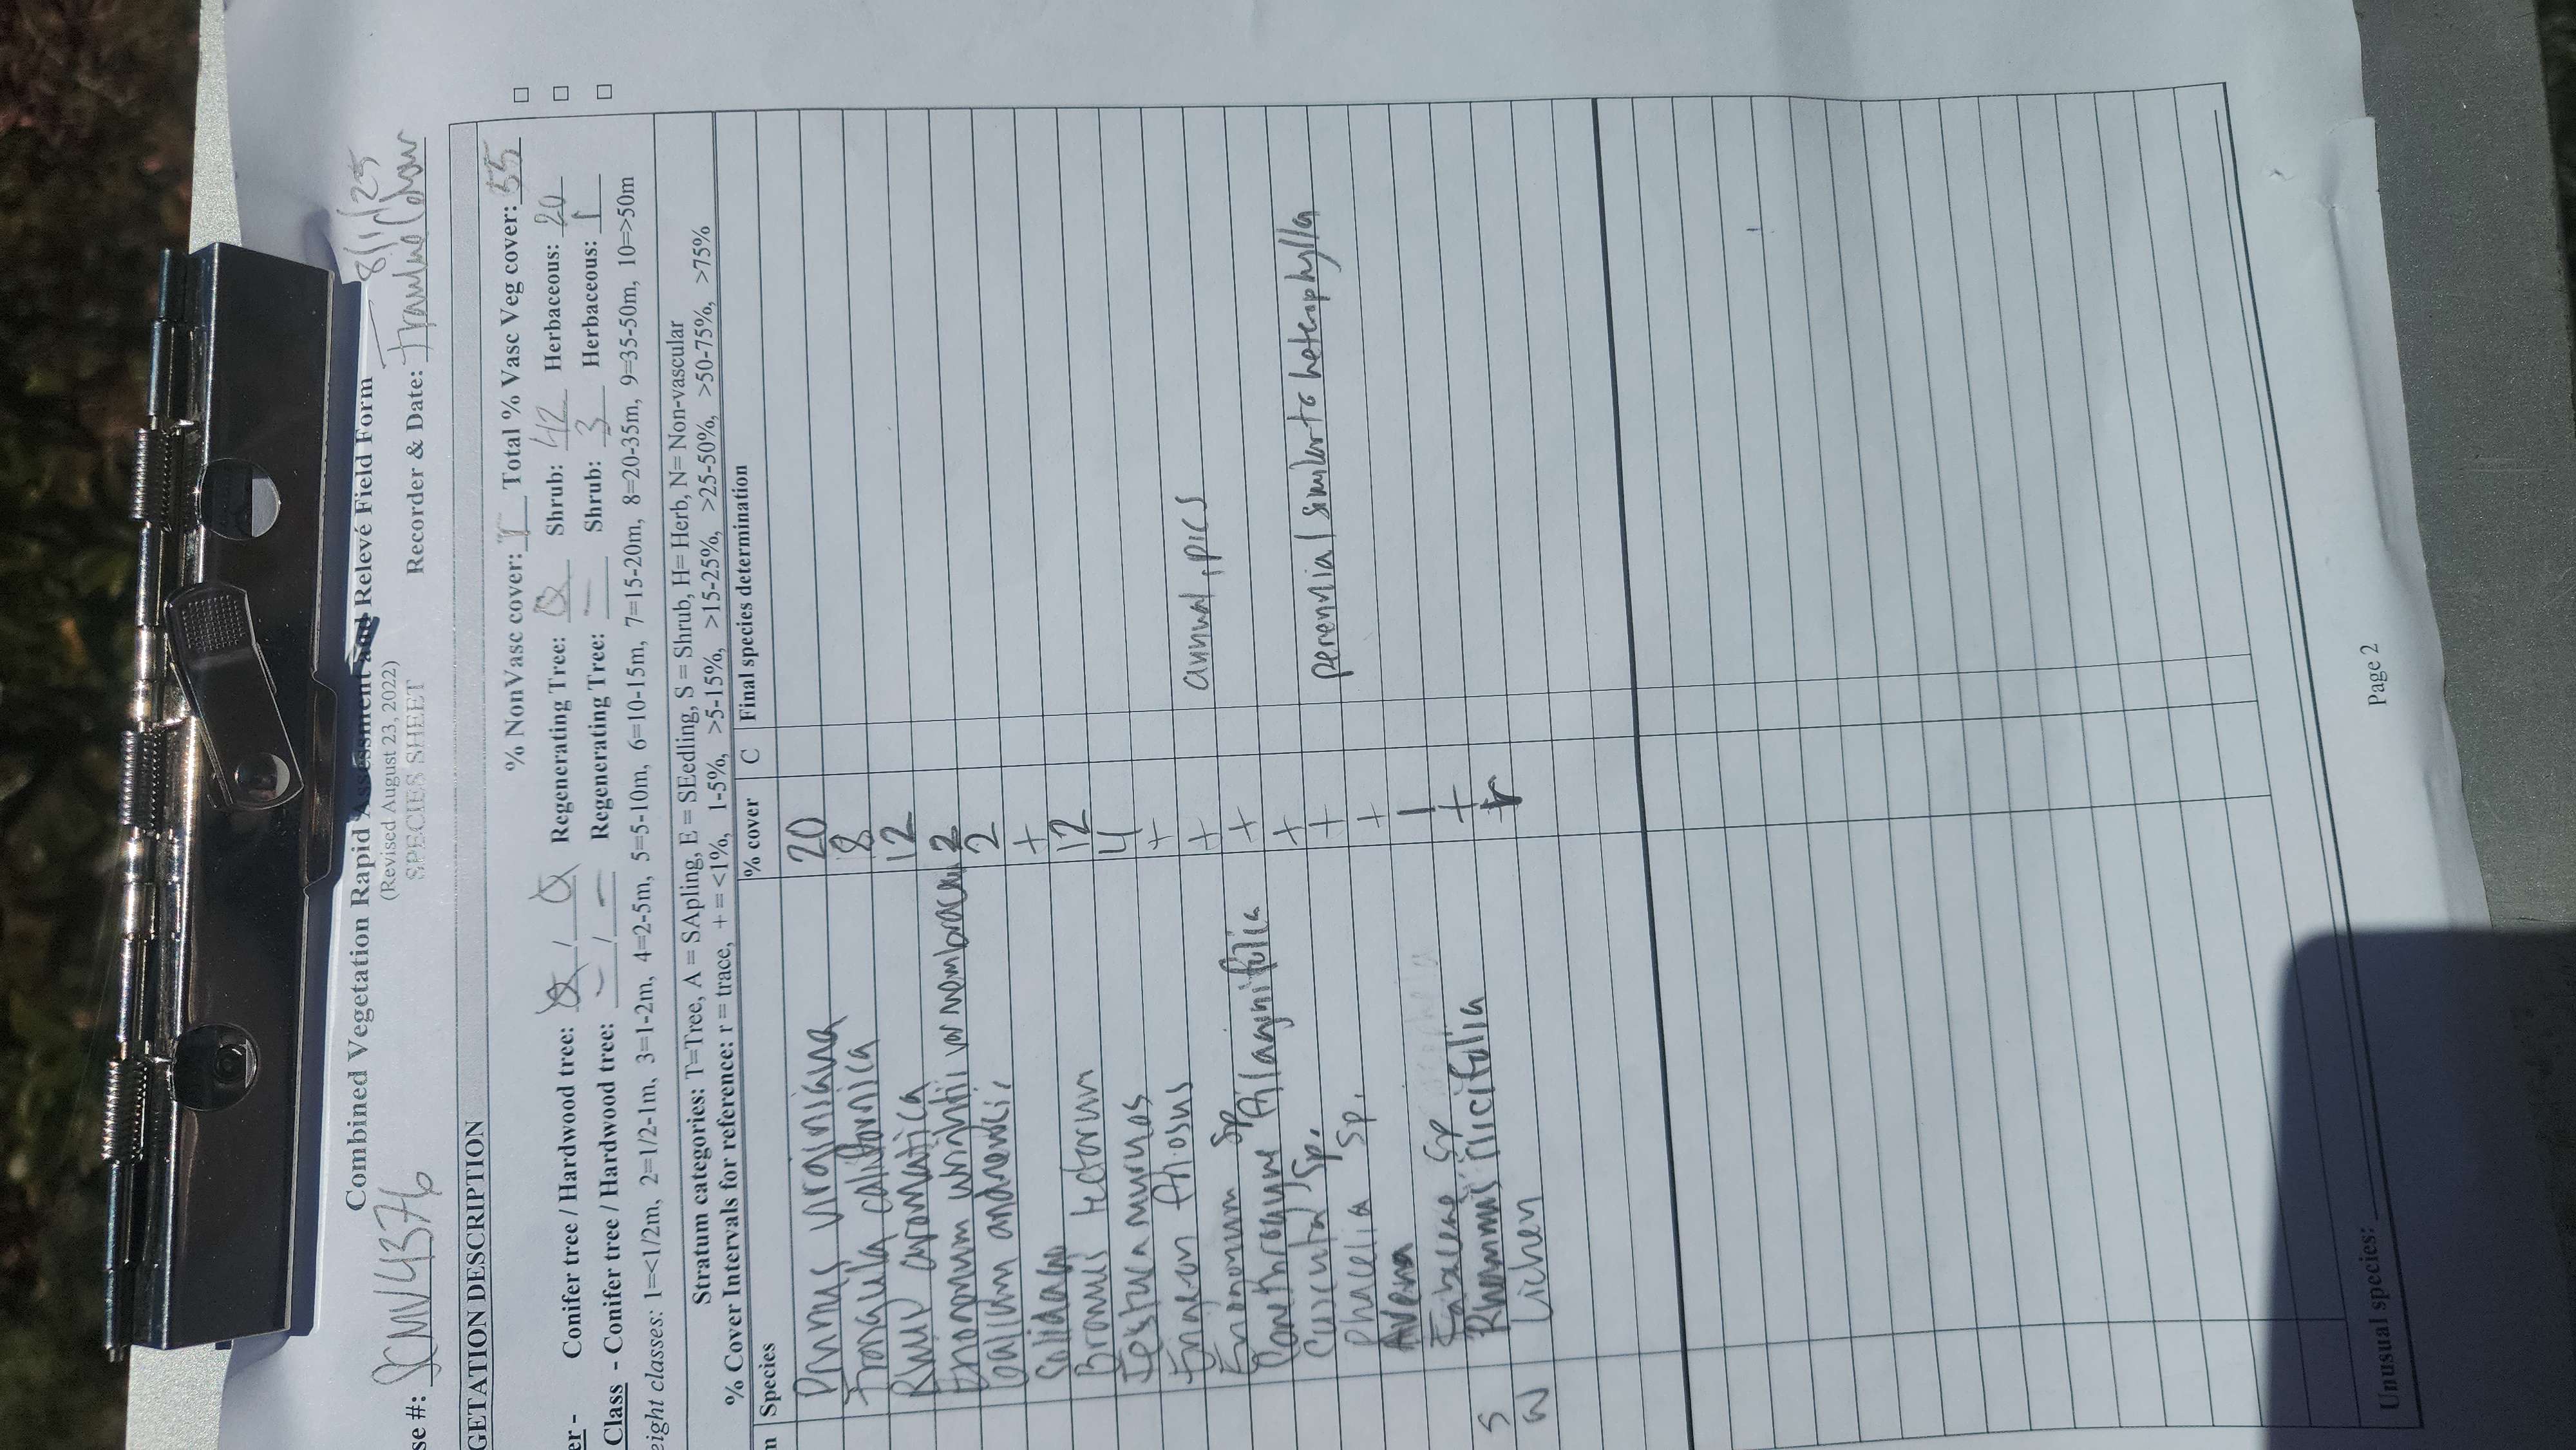 Combined Vegetation Rapid Assessment and Relevé Field Form
(Revised August 23, 2022)
SPECIES SHEET
se #: SCMV4376 Recorder & Date: 8/1/25
GETATION DESCRIPTION
% NonVasc cover: Total % Vasc Veg cover: 55
er - Conifer tree / Hardwood tree: / Regenerating Tree: Shrub: 42 Herbaceous: 20
Class - Conifer tree / Hardwood tree: - / - Regenerating Tree: - Shrub: 3 Herbaceous: 1
eight classes: 1=<1/2m, 2=1/2-1m, 3=1-2m, 4=2-5m, 5=5-10m, 6=10-15m, 7=15-20m, 8=20-35m, 9=35-50m, 10=>50m
Stratum categories: T=Tree, A = SApling, E = SEedling, S = Shrub, H= Herb, N= Non-vascular
% Cover Intervals for reference: r = trace, + = <1%, 1-5%, >5-15%, >15-25%, >25-50%, >50-75%, >75%
n Species % cover C Final species determination
Prunus virginiana 20
Frangula californica 8
Rhus aromatica 12
Eriogonum wrightii var membranaceum 2
Galium andrewsii 2
Solidago +
Bromus tectorum 12
Festuca myuros 4
Erigeron foliosus +
Eriogonum sp + annual, pics
Corethrogyne filaginifolia +
Cuscuta sp. +
Phacelia sp. + perennial similar to heterophylla
Avena +
Fabaceae sp 1
S Rhamnus ilicifolia +
N Lichen r
Unusual species:
Page 2